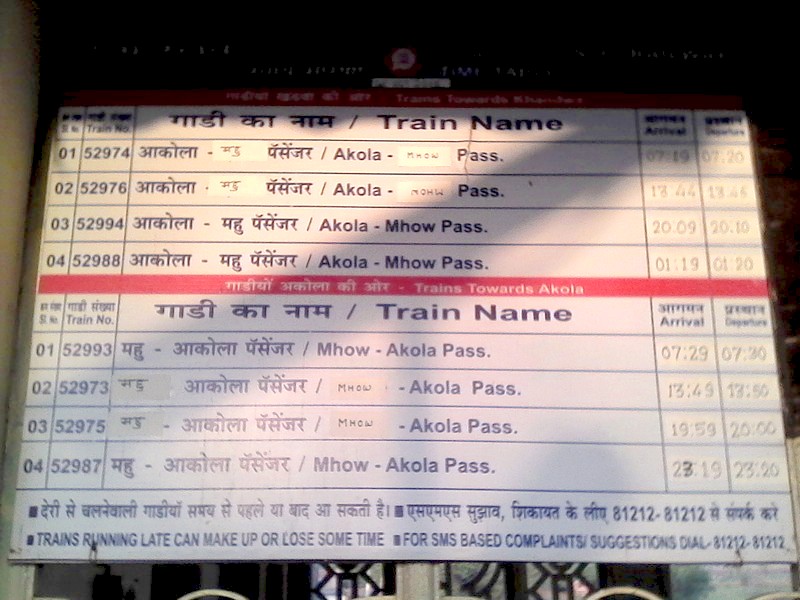 TIME TABLE
गाडीयाँ खंडवा की ओर - Trains Towards Khandwa
Sl. No. गाडी संख्या Train No. गाडी का नाम / Train Name आगमन Arrival प्रस्थान Departure
01 52974 आकोला - महु पॅसेंजर / Akola - MHOW Pass. 07:19 07.20
02 52976 आकोला - महु पॅसेंजर / Akola - MOHW Pass. 13.44 13.45
03 52994 आकोला - महु पॅसेंजर / Akola - Mhow Pass. 20.09 20.10
04 52988 आकोला - महु पॅसेंजर / Akola - Mhow Pass. 01:19 01:20
गाडीयाँ अकोला की ओर - Trains Towards Akola
Sl. No. गाडी संख्या Train No. गाडी का नाम / Train Name आगमन Arrival प्रस्थान Departure
01 52993 महु - आकोला पॅसेंजर / Mhow - Akola Pass. 07:29 07:30
02 52973 महु आकोला पॅसेंजर / MHOW - Akola Pass. 13:49 13:50
03 52975 महु - आकोला पॅसेंजर / MHOW - Akola Pass. 19:59 20:00
04 52987 महु - आकोला पॅसेंजर / Mhow - Akola Pass. 23:19 23:20
■ देरी से चलनेवाली गाडीयाँ समय से पहले या बाद आ सकती है। ■ एसएमएस सुझाव, शिकायत के लीए 81212-81212 से संपर्क करे
■ TRAINS RUNNING LATE CAN MAKE UP OR LOSE SOME TIME ■ FOR SMS BASED COMPLAINTS/ SUGGESTIONS DIAL-81212-81212